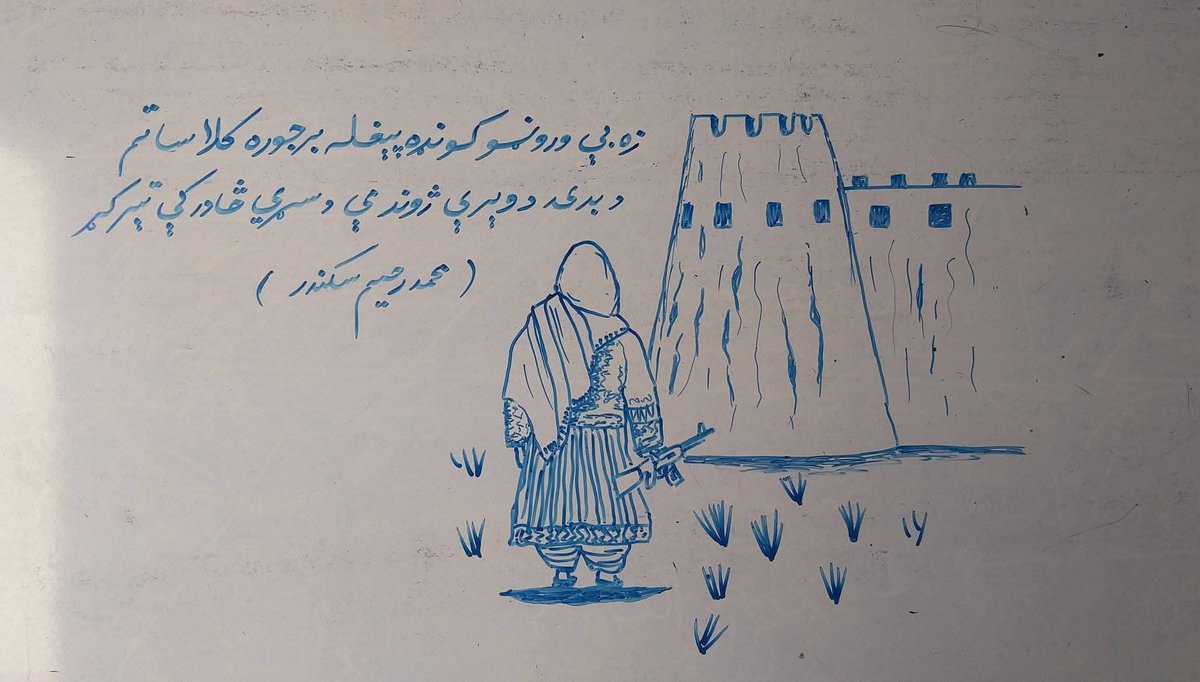 زه بې ورونو کونډه پېغله برجوره کلا ساتم
د بدۍ د وېرې ژوند مې د سړي څادر کې تېر کړ
( محمد رحیم سکندر )